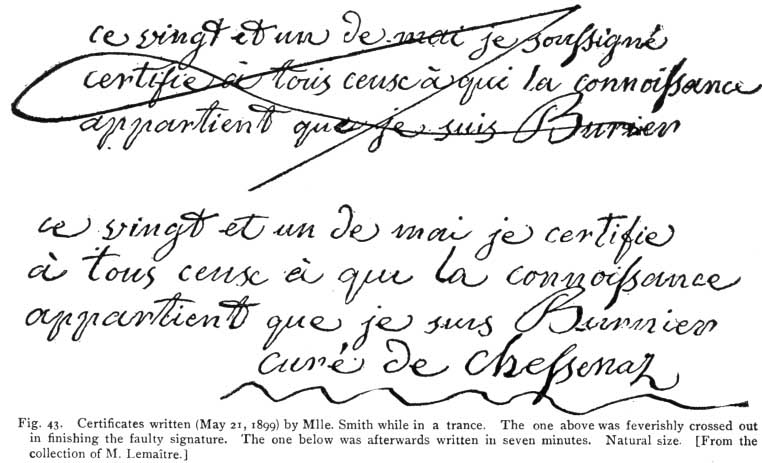 ce vingt et un de mai je soussigné
certifie à tous ceusc à qui la connoissance
appartient que je suis Burnier
ce vingt et un de mai je certifie
à tous ceusc à qui la connoissance
appartient que je suis Burnier
curé de Chessenaz
Fig. 43. Certificates written (May 21, 1899) by Mlle. Smith while in a trance. The one above was feverishly crossed out
in finishing the faulty signature. The one below was afterwards written in seven minutes. Natural size. [From the
collection of M. Lemaître.]